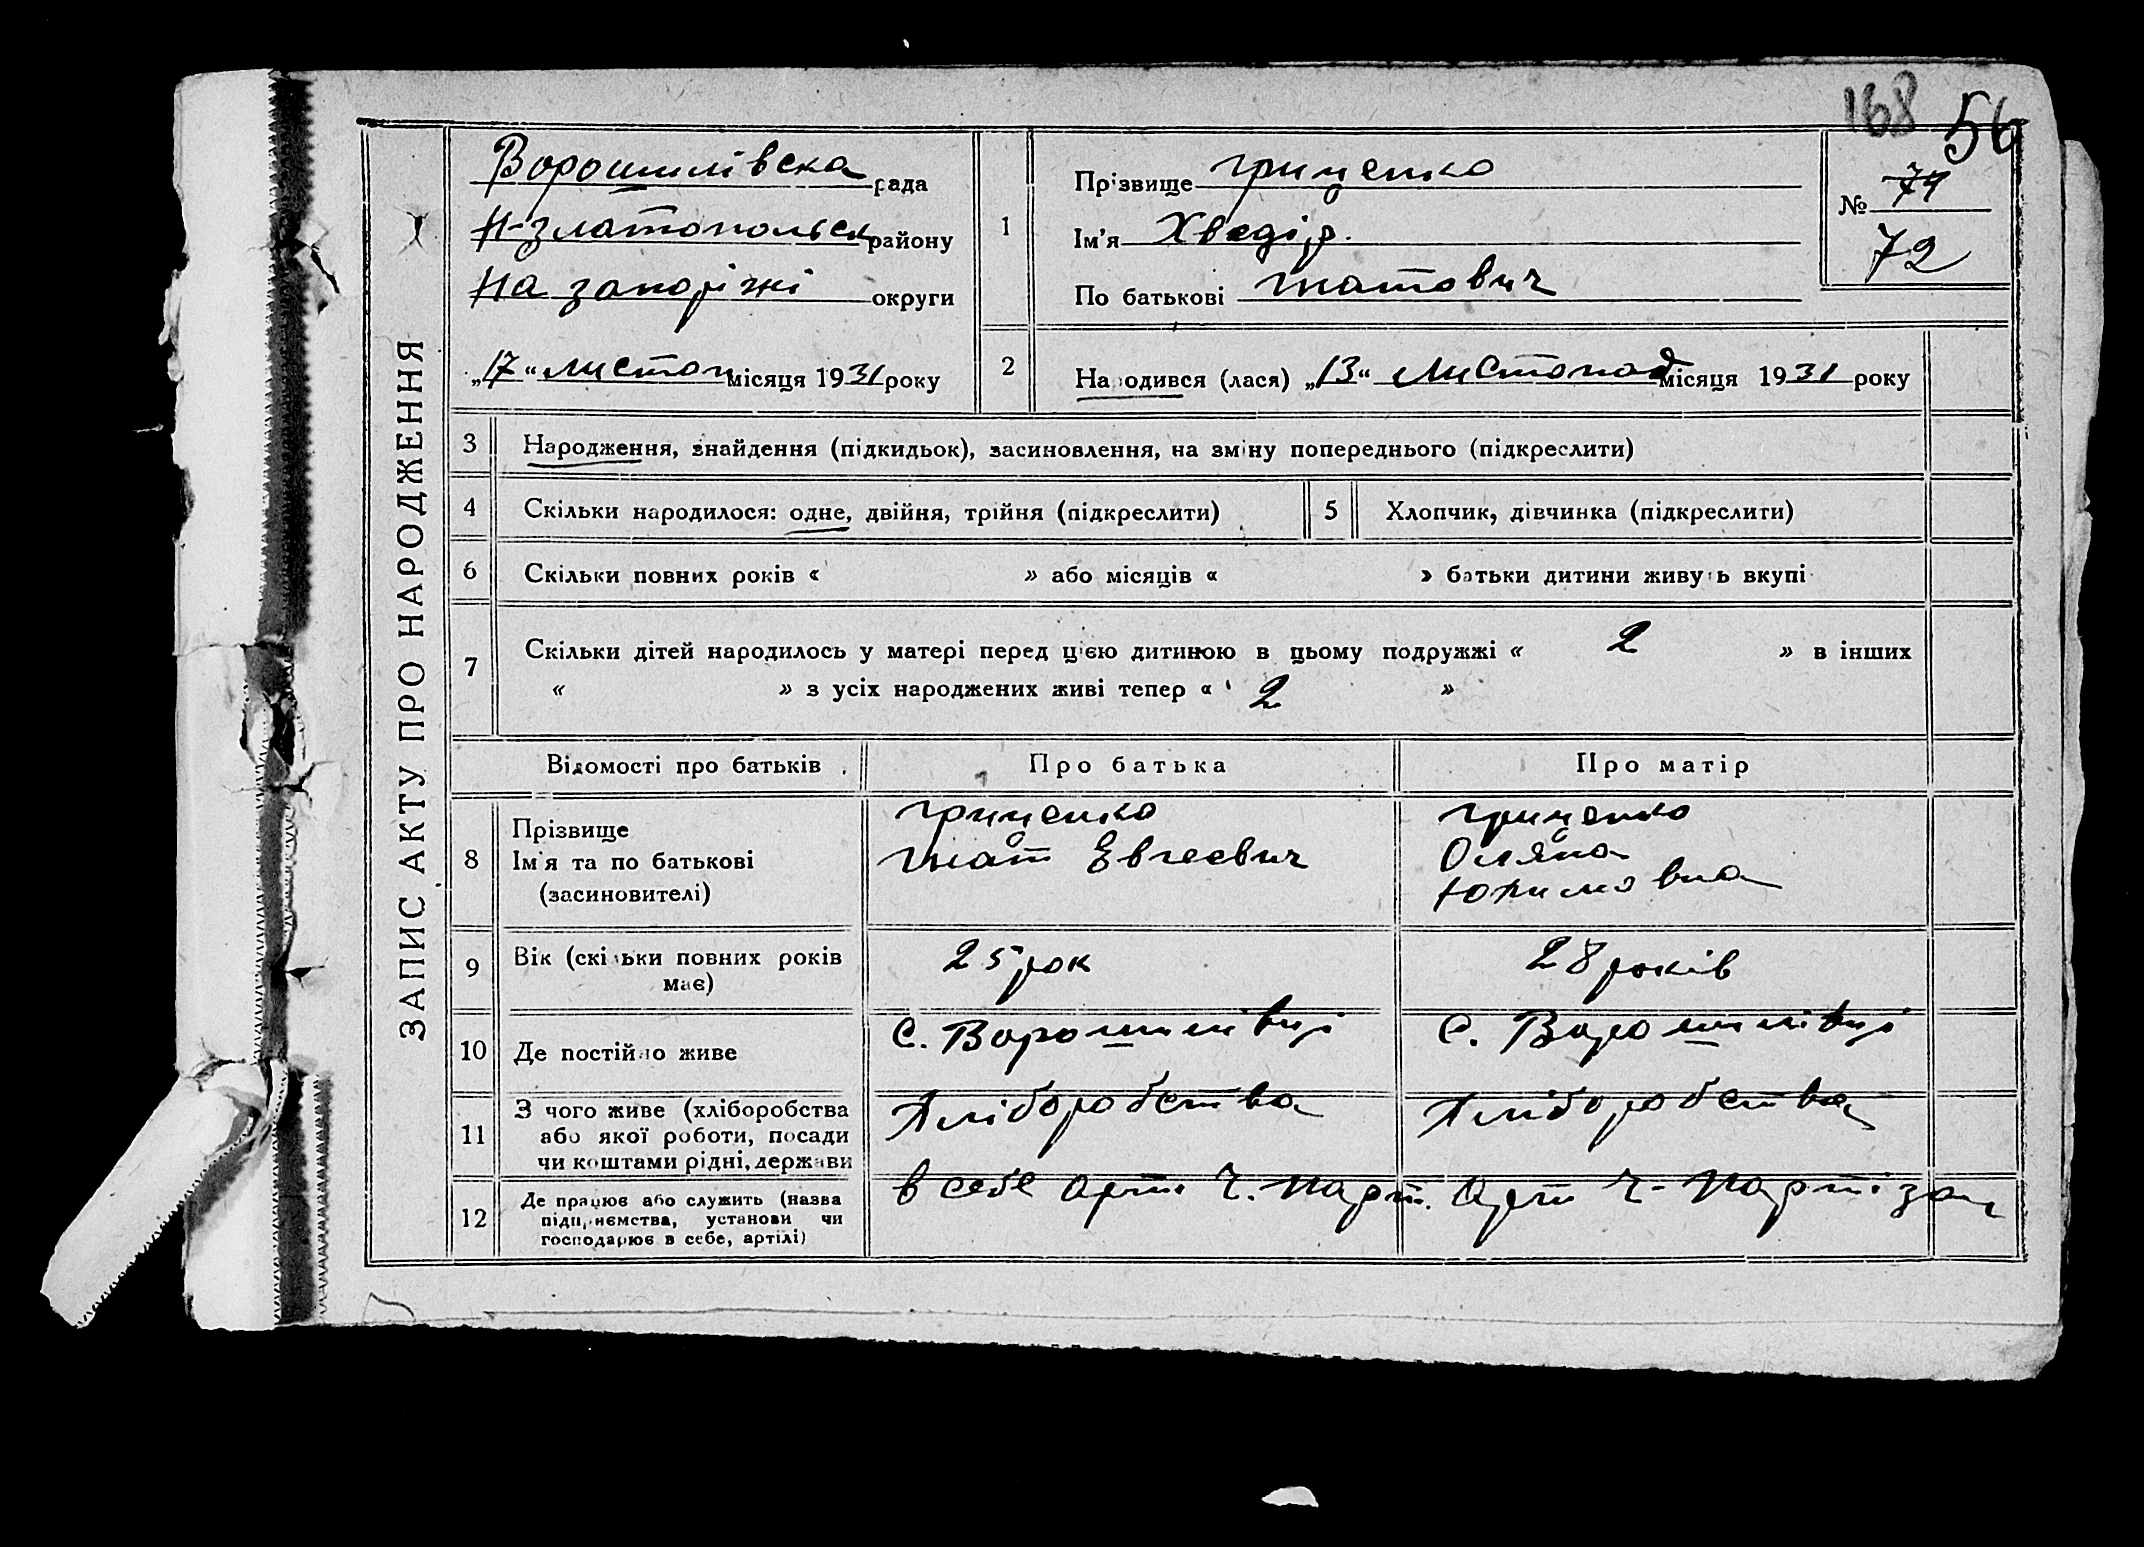 168 56
ЗАПИС АКТУ ПРО НАРОДЖЕННЯ
Ворошилівська рада
Н-Златопольськ району
На запоріжі округи
„17“ листоп місяця 1931 року
1
Прізвище Гриценко
Ім’я Хведір.
По батькові Гнатович
№ 74
72
2
Народився (лася) „13“ Листопад місяця 1931 року
3 Народження, знайдення (підкидьок), засиновлення, на зміну попереднього (підкреслити)
4 Скільки народилося: одне, двійня, трійня (підкреслити) 5 Хлопчик, дівчинка (підкреслити)
6 Скільки повних років « » або місяців « » батьки дитини живуть вкупі
7 Скільки дітей народилось у матері перед цією дитиною в цьому подружжі « 2 » в інших
« » з усіх народжених живі тепер « 2 »
Відомості про батьків Про батька Про матір
8 Прізвище
Ім’я та по батькові
(засиновителі)
Гриценко
Гнат Евгеевич
Гриценко
Оляна
9 Вік (скільки повних років
має)
25 рок
28 років
10 Де постійно живе
С. Ворошилівці
С. Ворошилівці
11 З чого живе (хліборобства
або якої роботи, посади
чи коштами рідні, держави
Хліборобства
Хліборобства
12 Де працює або служить (назва
підприємства, установи чи
господарює в себе, артілі)
в себе арт. Ч. Парт.
Арт Ч. Партізан